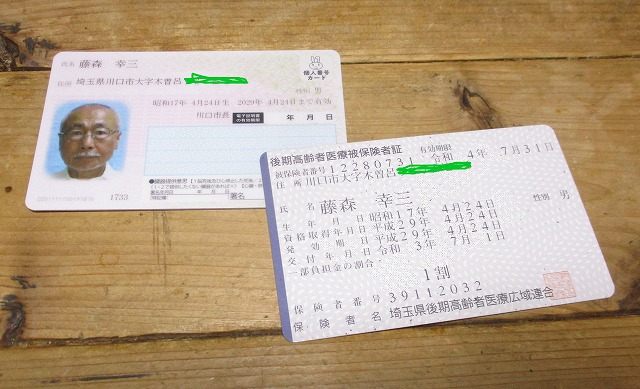 氏名 藤森 幸三
住所 埼玉県川口市大字木曽呂
個人番号
カード
性別 男
昭和17年 4月24日生 2029年 4月24日まで有効
川口市長 電子証明書の有効期限 年 月 日
1733
署名 年 月 日
後期高齢者医療被保険者証 有効期限
被保険者番号 12280731 令和 4年 7月31日
住所 川口市大字木曽呂
氏名 藤森 幸三 性別 男
生年月日 昭和17年 4月24日
資格取得年月日 平成29年 4月24日
発効期日 平成29年 4月24日
交付年月日 令和 3年 7月 1日
一部負担金の割合
1割
保険者番号 39112032
保険者名 埼玉県後期高齢者医療広域連合